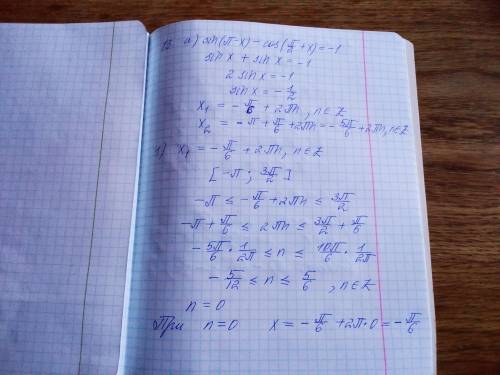 13. а) sin(π-x) - cos(π/2+x) = -1
sin x + sin x = -1
2 sin x = -1
sin x = -1/2
x₁ = -π/6 + 2πn, n∈Z
x₂ = -π + π/6 + 2πn = -5π/6 + 2πn, n∈Z
1) x₁ = -π/6 + 2πn, n∈Z
[-π; 3π/2]
-π ≤ -π/6 + 2πn ≤ 3π/2
-π + π/6 ≤ 2πn ≤ 3π/2 + π/6
-5π/6 · 1/2π ≤ n ≤ 10π/6 · 1/2π
-5/12 ≤ n ≤ 5/6, n∈Z
n = 0
При n=0 x = -π/6 + 2π·0 = -π/6